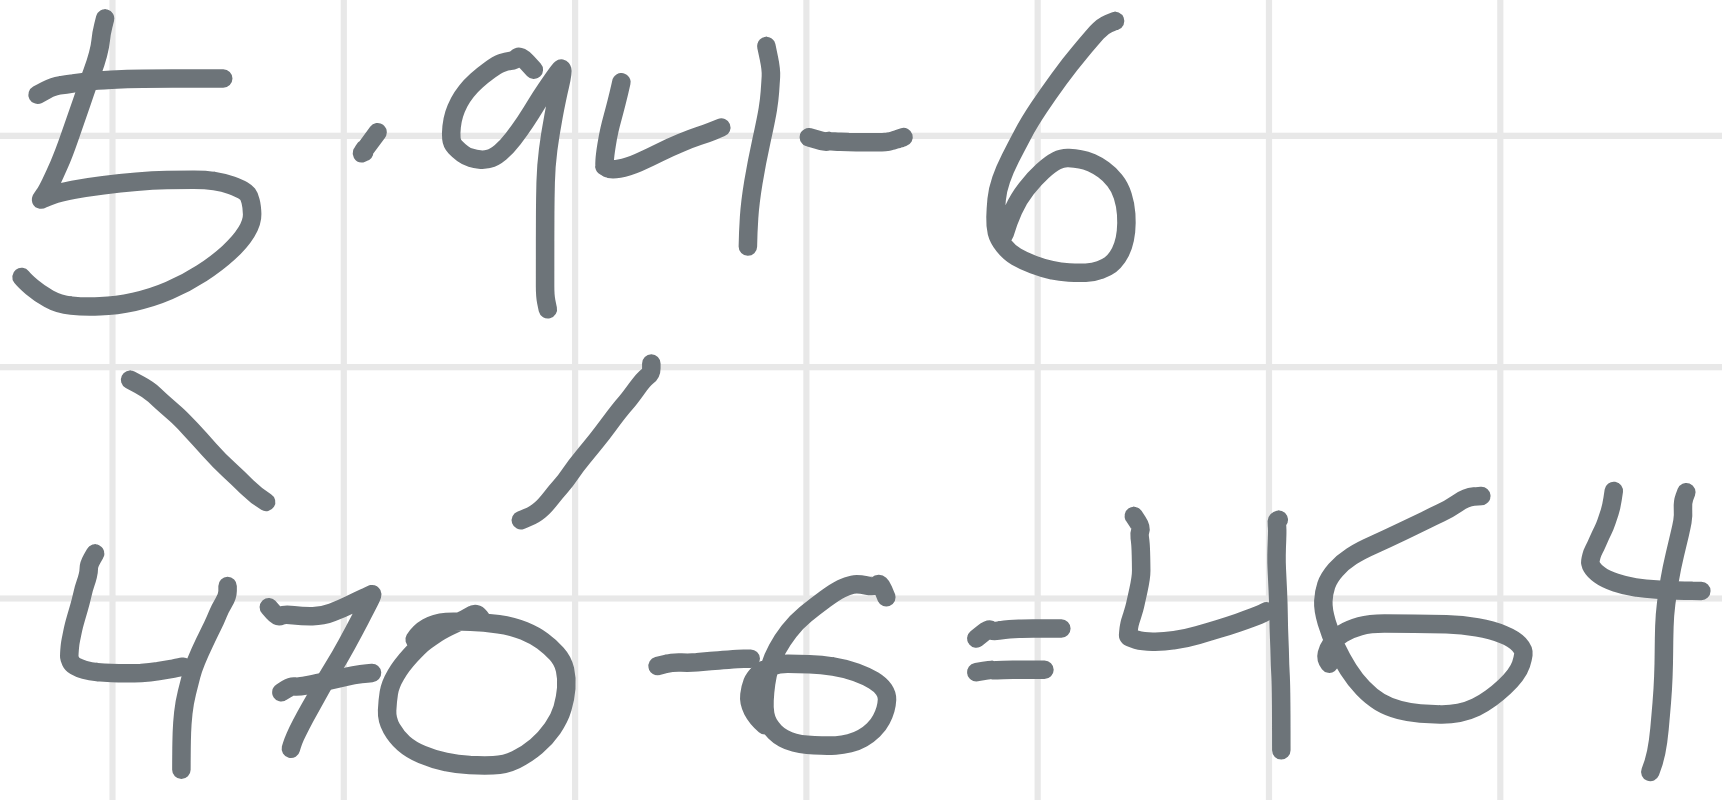 5 · 94 - 6
470 - 6 = 464